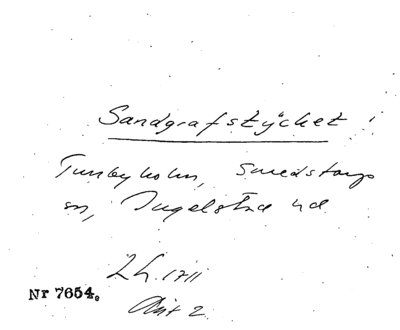 Sandgrafstÿcket
Tunbyholm, Smedstorps
sn, Ingelstad hd
Lh. 1711
Nr 7654.
Akt 2